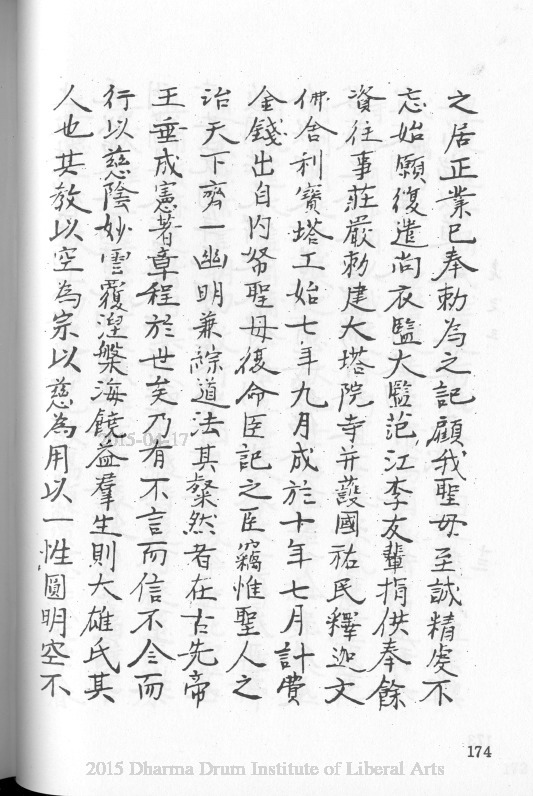 之居正業已奉勅為之記顧我聖母至誠精虔不
忘始願復遣尚衣監大監范江李友輩捐供奉餘
資往事莊嚴勅建大塔院寺并護國祐民釋迦文
佛舍利寳塔工始七年九月成於十年七月計費
金錢出自内帑聖母復命臣記之臣竊惟聖人之
治天下齊一幽明兼綜道法其粲然者在古先帝
王垂成憲著章程於世矣乃有不言而信不令而
行以慈陰妙雲覆湼槃海饒益羣生則大雄氏其
人也其教以空為宗以慈為用以一性圓明空不
174
2015-04-17
2015 Dharma Drum Institute of Liberal Arts